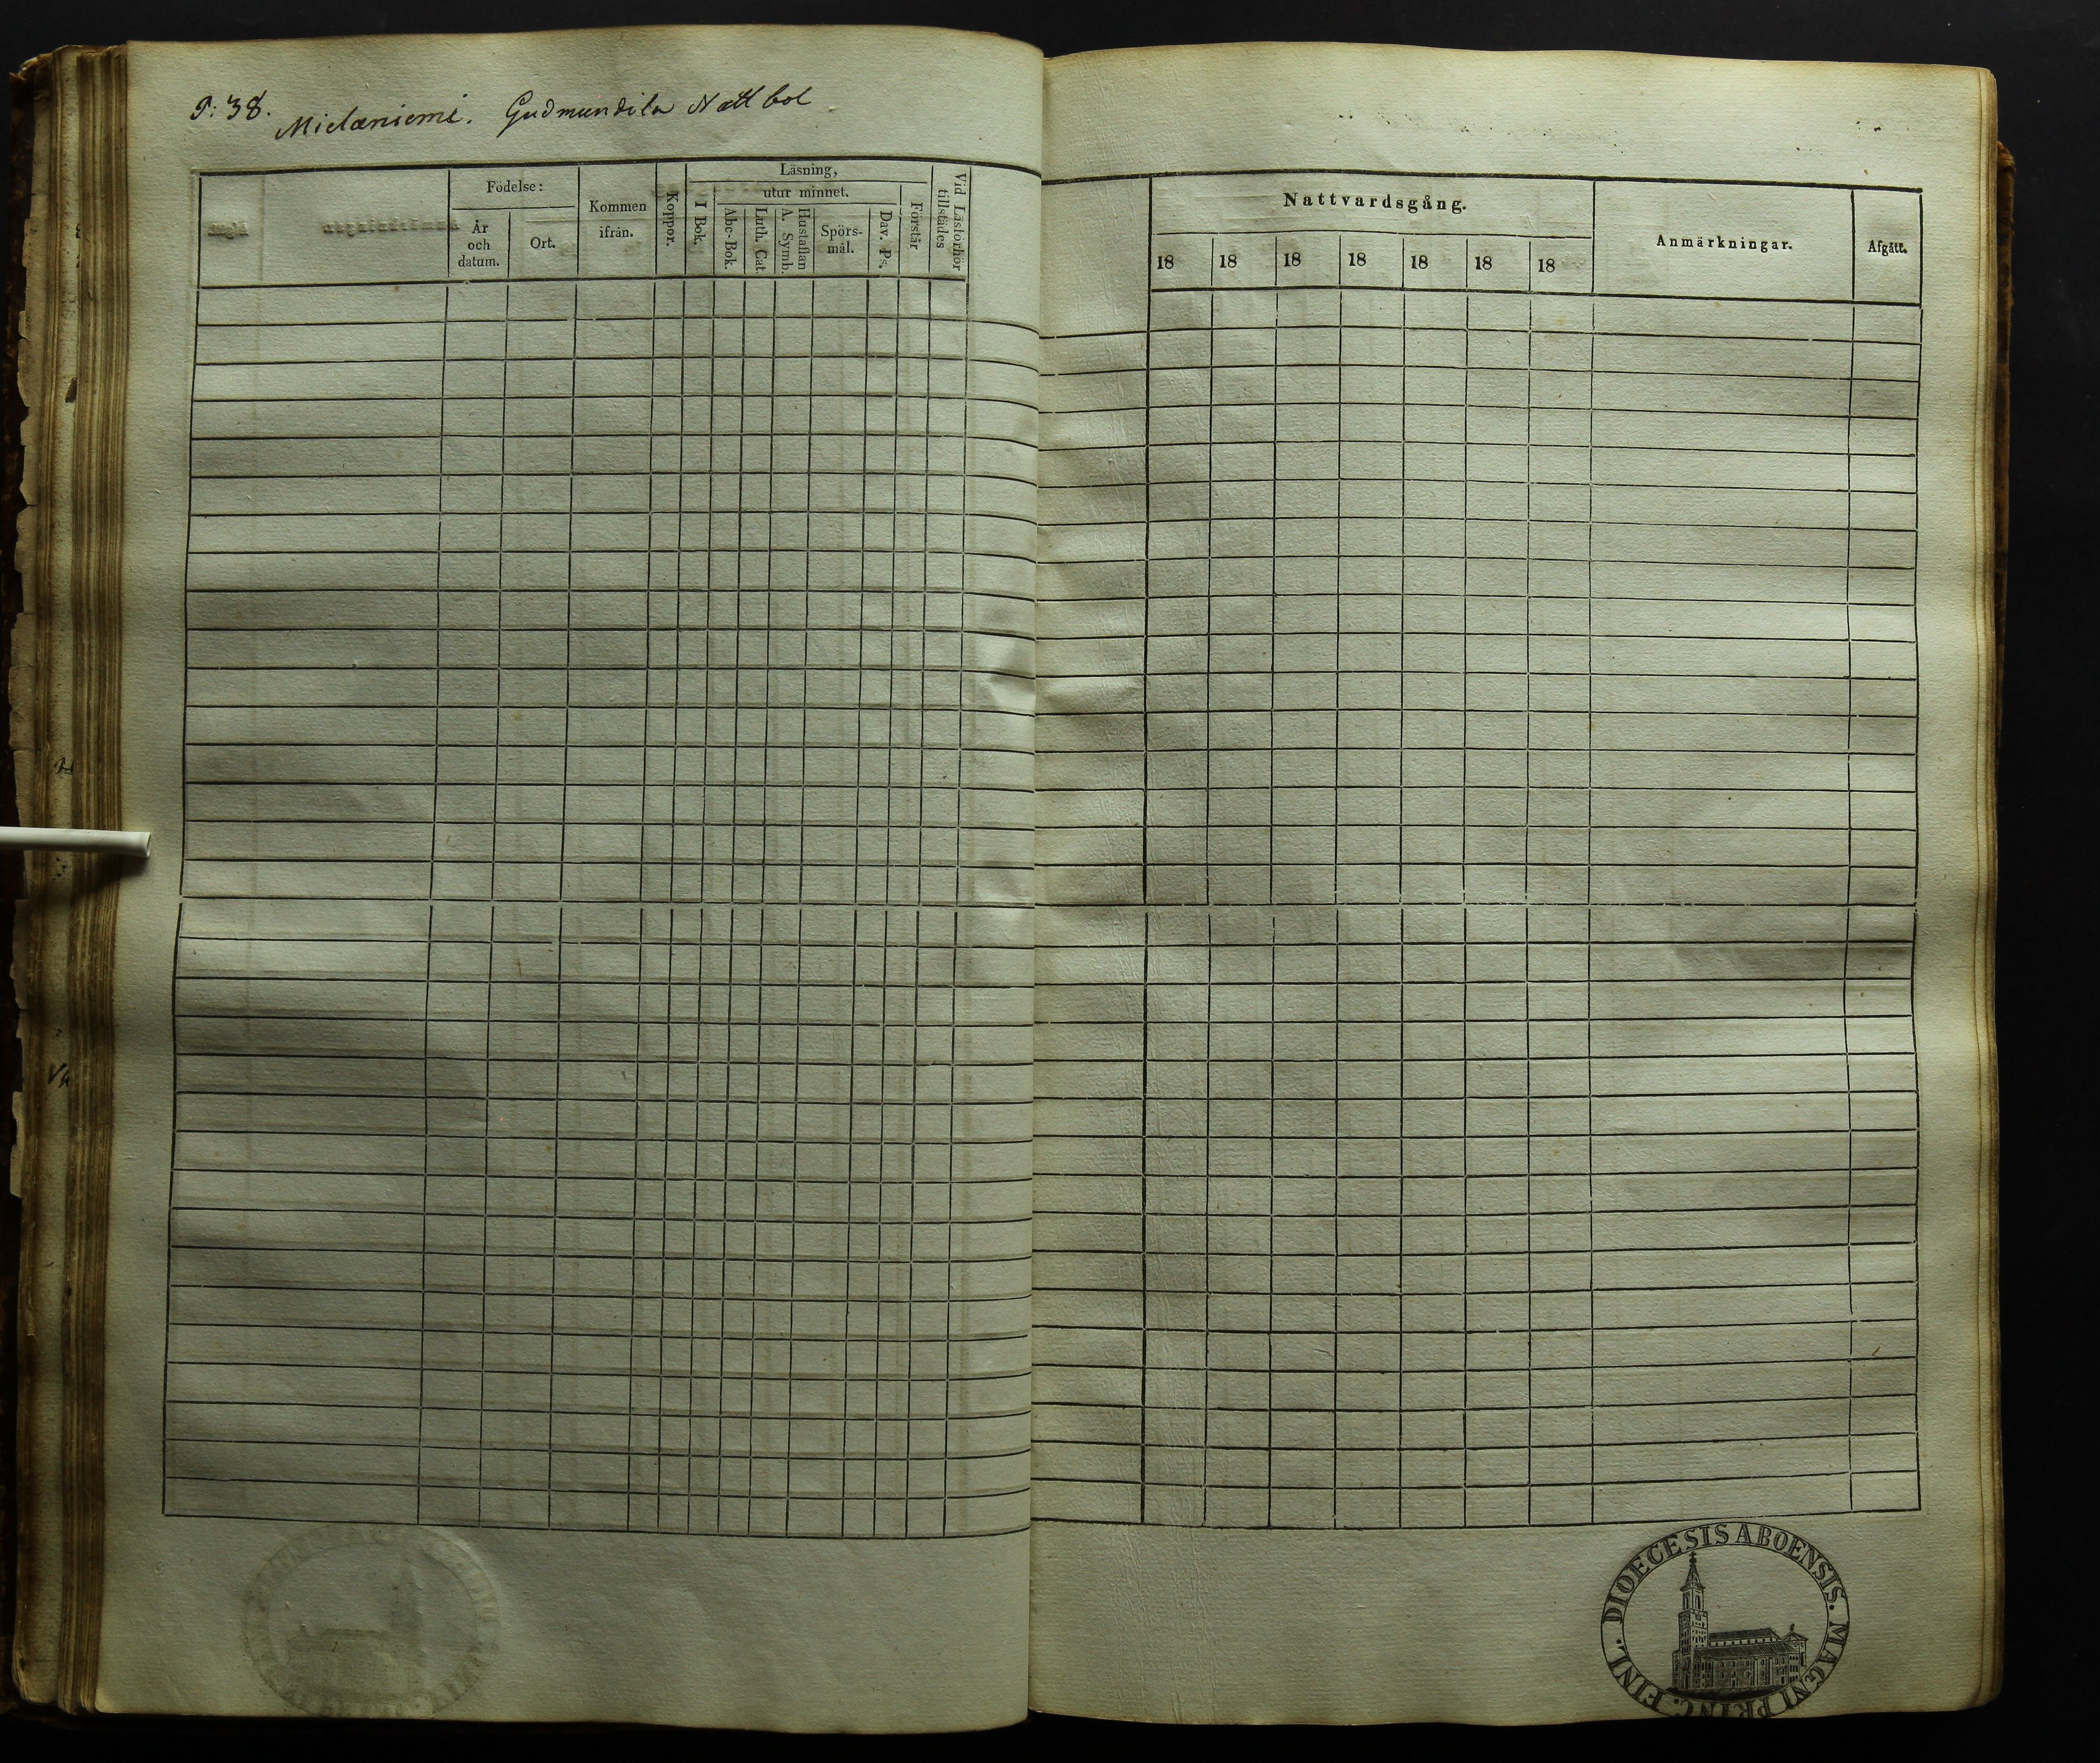 P: 38.
Mielæniemi. Gudmundila Natt bol
Födelse:
År och datum.
Ort.
Kommen ifrån.
Koppor.
Läsning,
I Bok.
utur minnet.
Abc-Bok.
Luth. Cat.
Hustaflan A. Symb.
Spörs-mål.
Dav. Ps.
Förstår
Vid Läsförhör tillstädes
Nattvardsgång.
18 18 18 18 18 18 18
Anmärkningar.
Afgått.
DIOECESIS ABOENSIS. MAGNI PRINC. FINL.